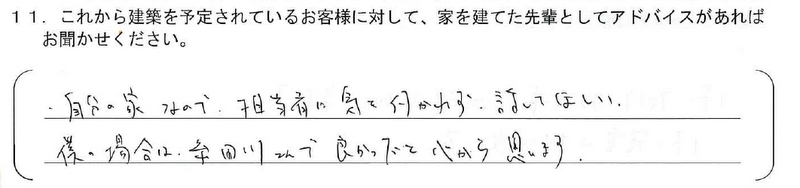 11．これから建築を予定されているお客様に対して、家を建てた先輩としてアドバイスがあれば
お聞かせください。
・自分の家なので、担当者に気を何かれず、話してほしい。
僕の場合は、牟田川さんで良かったと心から思います。